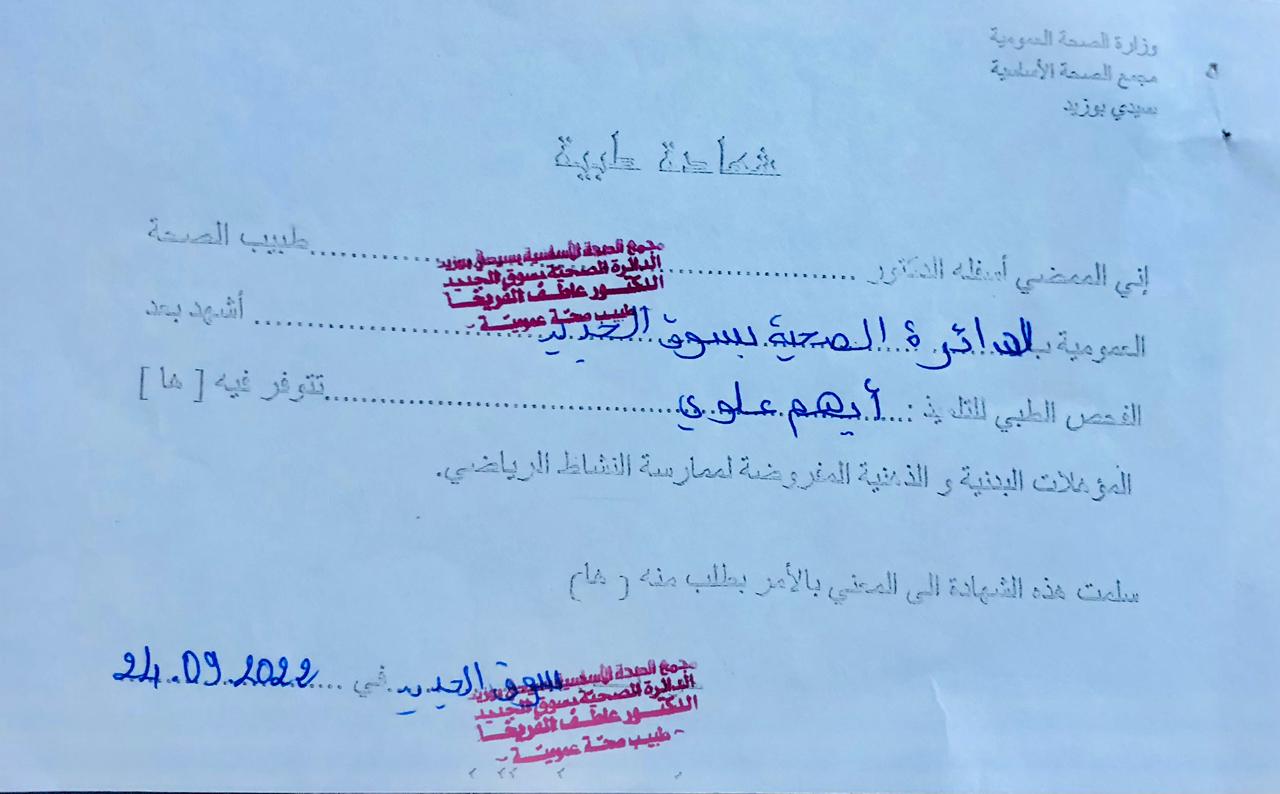 وزارة الصحة العمومية
مجمع الصحة الأساسية
سيدي بوزيد
شهادة طبية
إني الممضي أسفله الدكتور .................... طبيب الصحة
مجمع الصحة الأساسية بسيدي بوزيد
الدائرة الصحية بسوق الجديد
الدكتور عاطف الفريخا
طبيب صحة عمومية -
العمومية بالدائرة الصحية بسوق الجديد .................... أشهد بعد
الفحص الطبي للتلميذ : أيهم علوي .................... تتوفر فيه [ ها ]
المؤهلات البدنية و الذهنية المفروضة لممارسة النشاط الرياضي.
سلمت هذه الشهادة الى المعني بالأمر بطلب منه ( ها)
سوق الجديد في .... 24.09.2022
مجمع الصحة الأساسية بسيدي بوزيد
الدائرة الصحية بسوق الجديد
الدكتور عاطف الفريخا
- طبيب صحة عمومية -